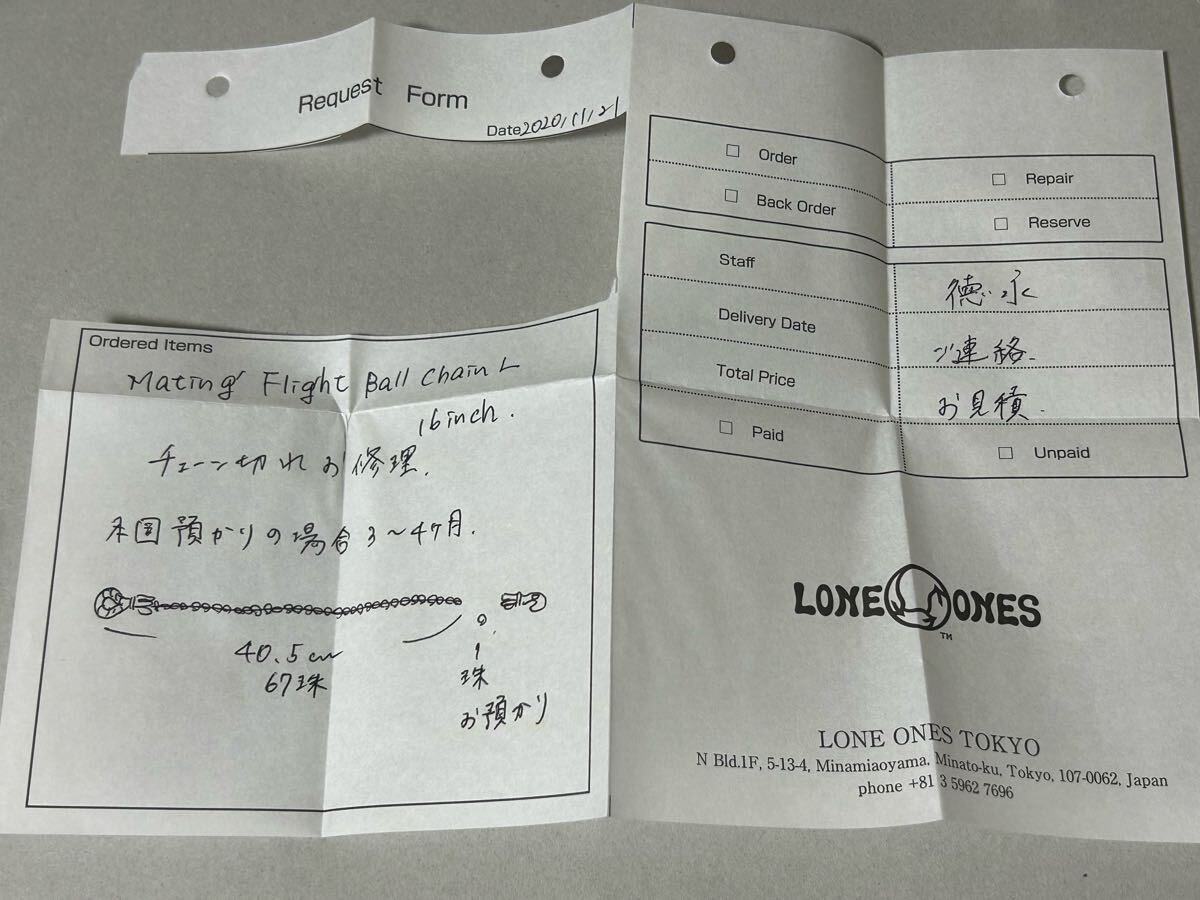 Request Form
Date 2020,11,21
Ordered Items
Mating Flight Ball Chain L
16 inch.
チェーン切れお修理.
本国預かりの場合3〜4ヶ月.
40.5cm
67珠
1
珠
お預かり
□ Order
□ Repair
□ Back Order
□ Reserve
Staff 徳永
Delivery Date ご連絡.
Total Price お見積.
□ Paid
□ Unpaid
LONE ONES
TM
LONE ONES TOKYO
N Bld.1F, 5-13-4, Minamiaoyama. Minato-ku, Tokyo, 107-0062, Japan
phone +81 3 5962 7696